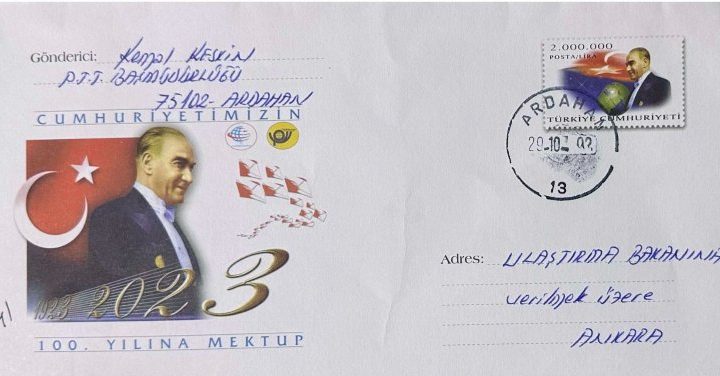 Gönderici: Kemal KESKİN
P.T.T. BAŞMÜDÜRLÜĞÜ
75102- ARDAHAN
CUMHURİYETİMİZİN
1923 2023
100. YILINA MEKTUP
2.000.000
POSTA/LİRA
TÜRKİYE CUMHURİYETİ
ARDAHAN
29-10
13
Adres: ULAŞTIRMA BAKANINA
verilmek üzere
ANKARA